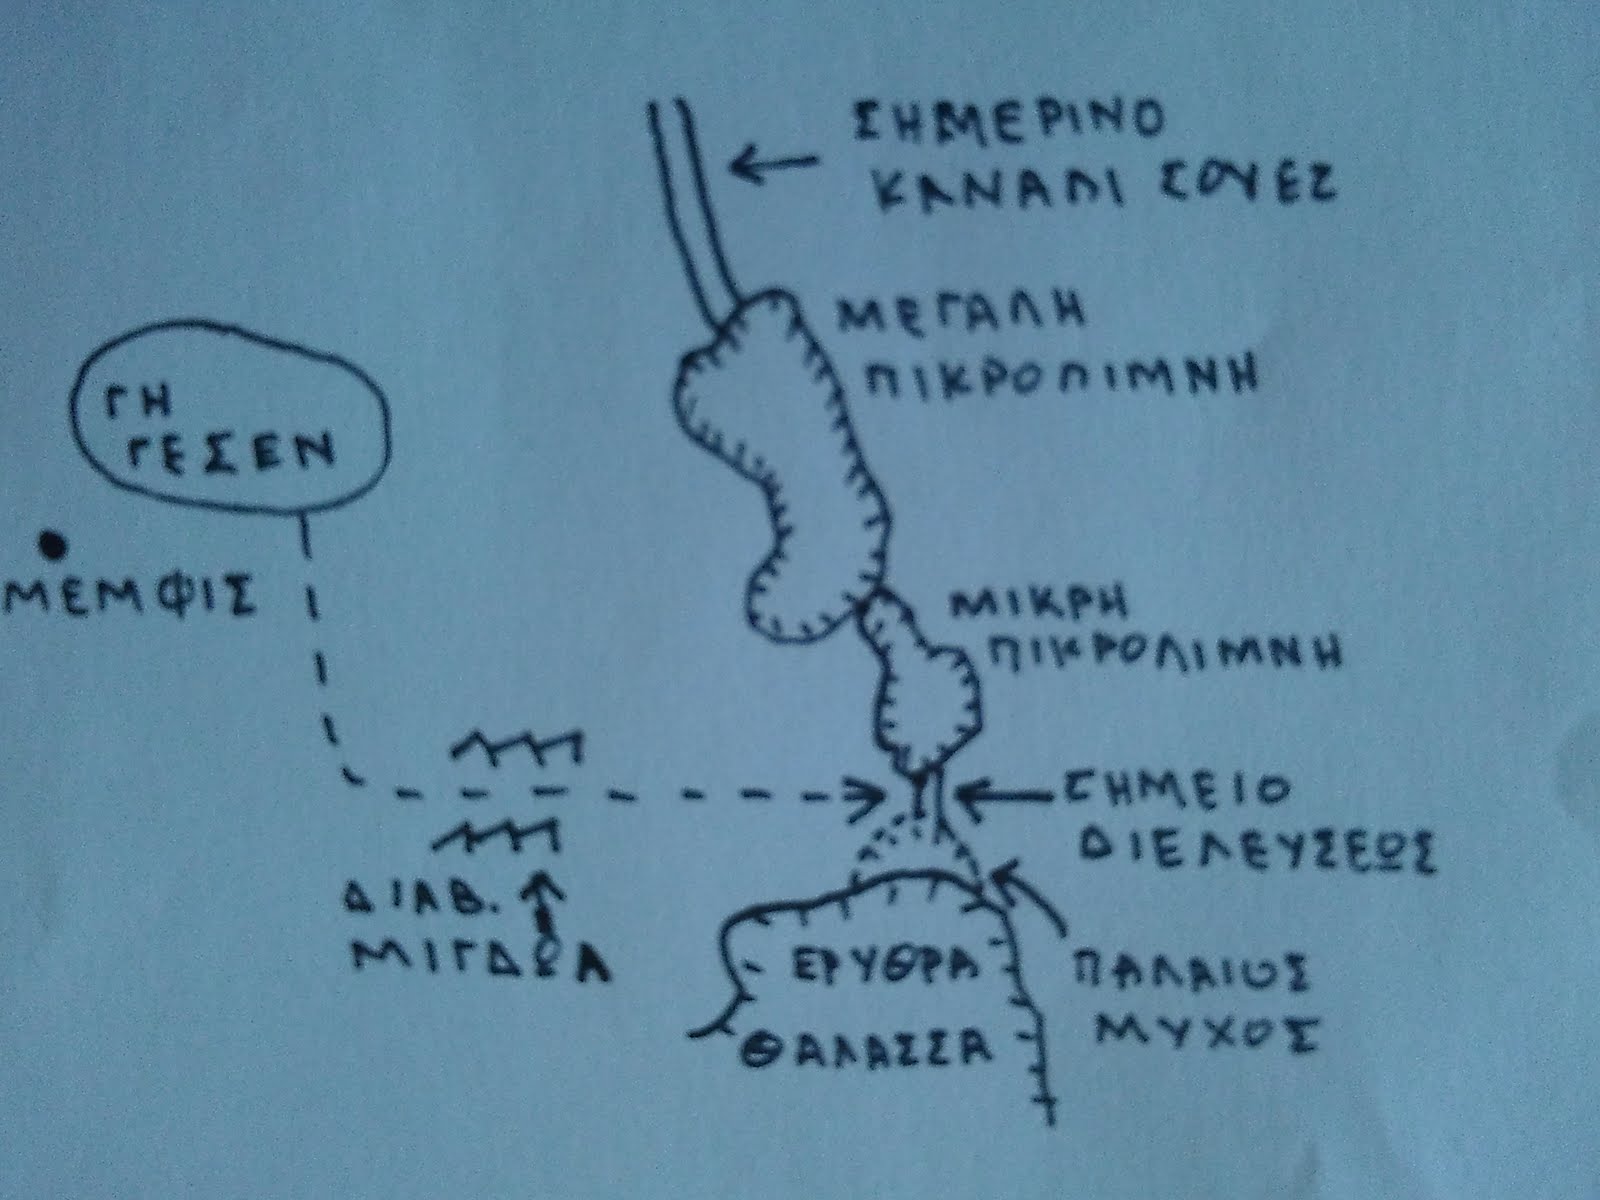 ΣΗΜΕΡΙΝΟ
ΚΑΝΑΛΙ ΣΟΥΕΖ
ΜΕΓΑΛΗ
ΠΙΚΡΟΛΙΜΝΗ
ΓΗ
ΓΕΣΕΝ
ΜΕΜΦΙΣ
ΜΙΚΡΗ
ΠΙΚΡΟΛΙΜΝΗ
ΣΗΜΕΙΟ
ΔΙΕΛΕΥΣΕΩΣ
ΔΙΑΒ.
ΜΙΓΔΩΛ
ΕΡΥΘΡΑ
ΘΑΛΑΣΣΑ
ΠΑΛΑΙΟΣ
ΜΥΧΟΣ